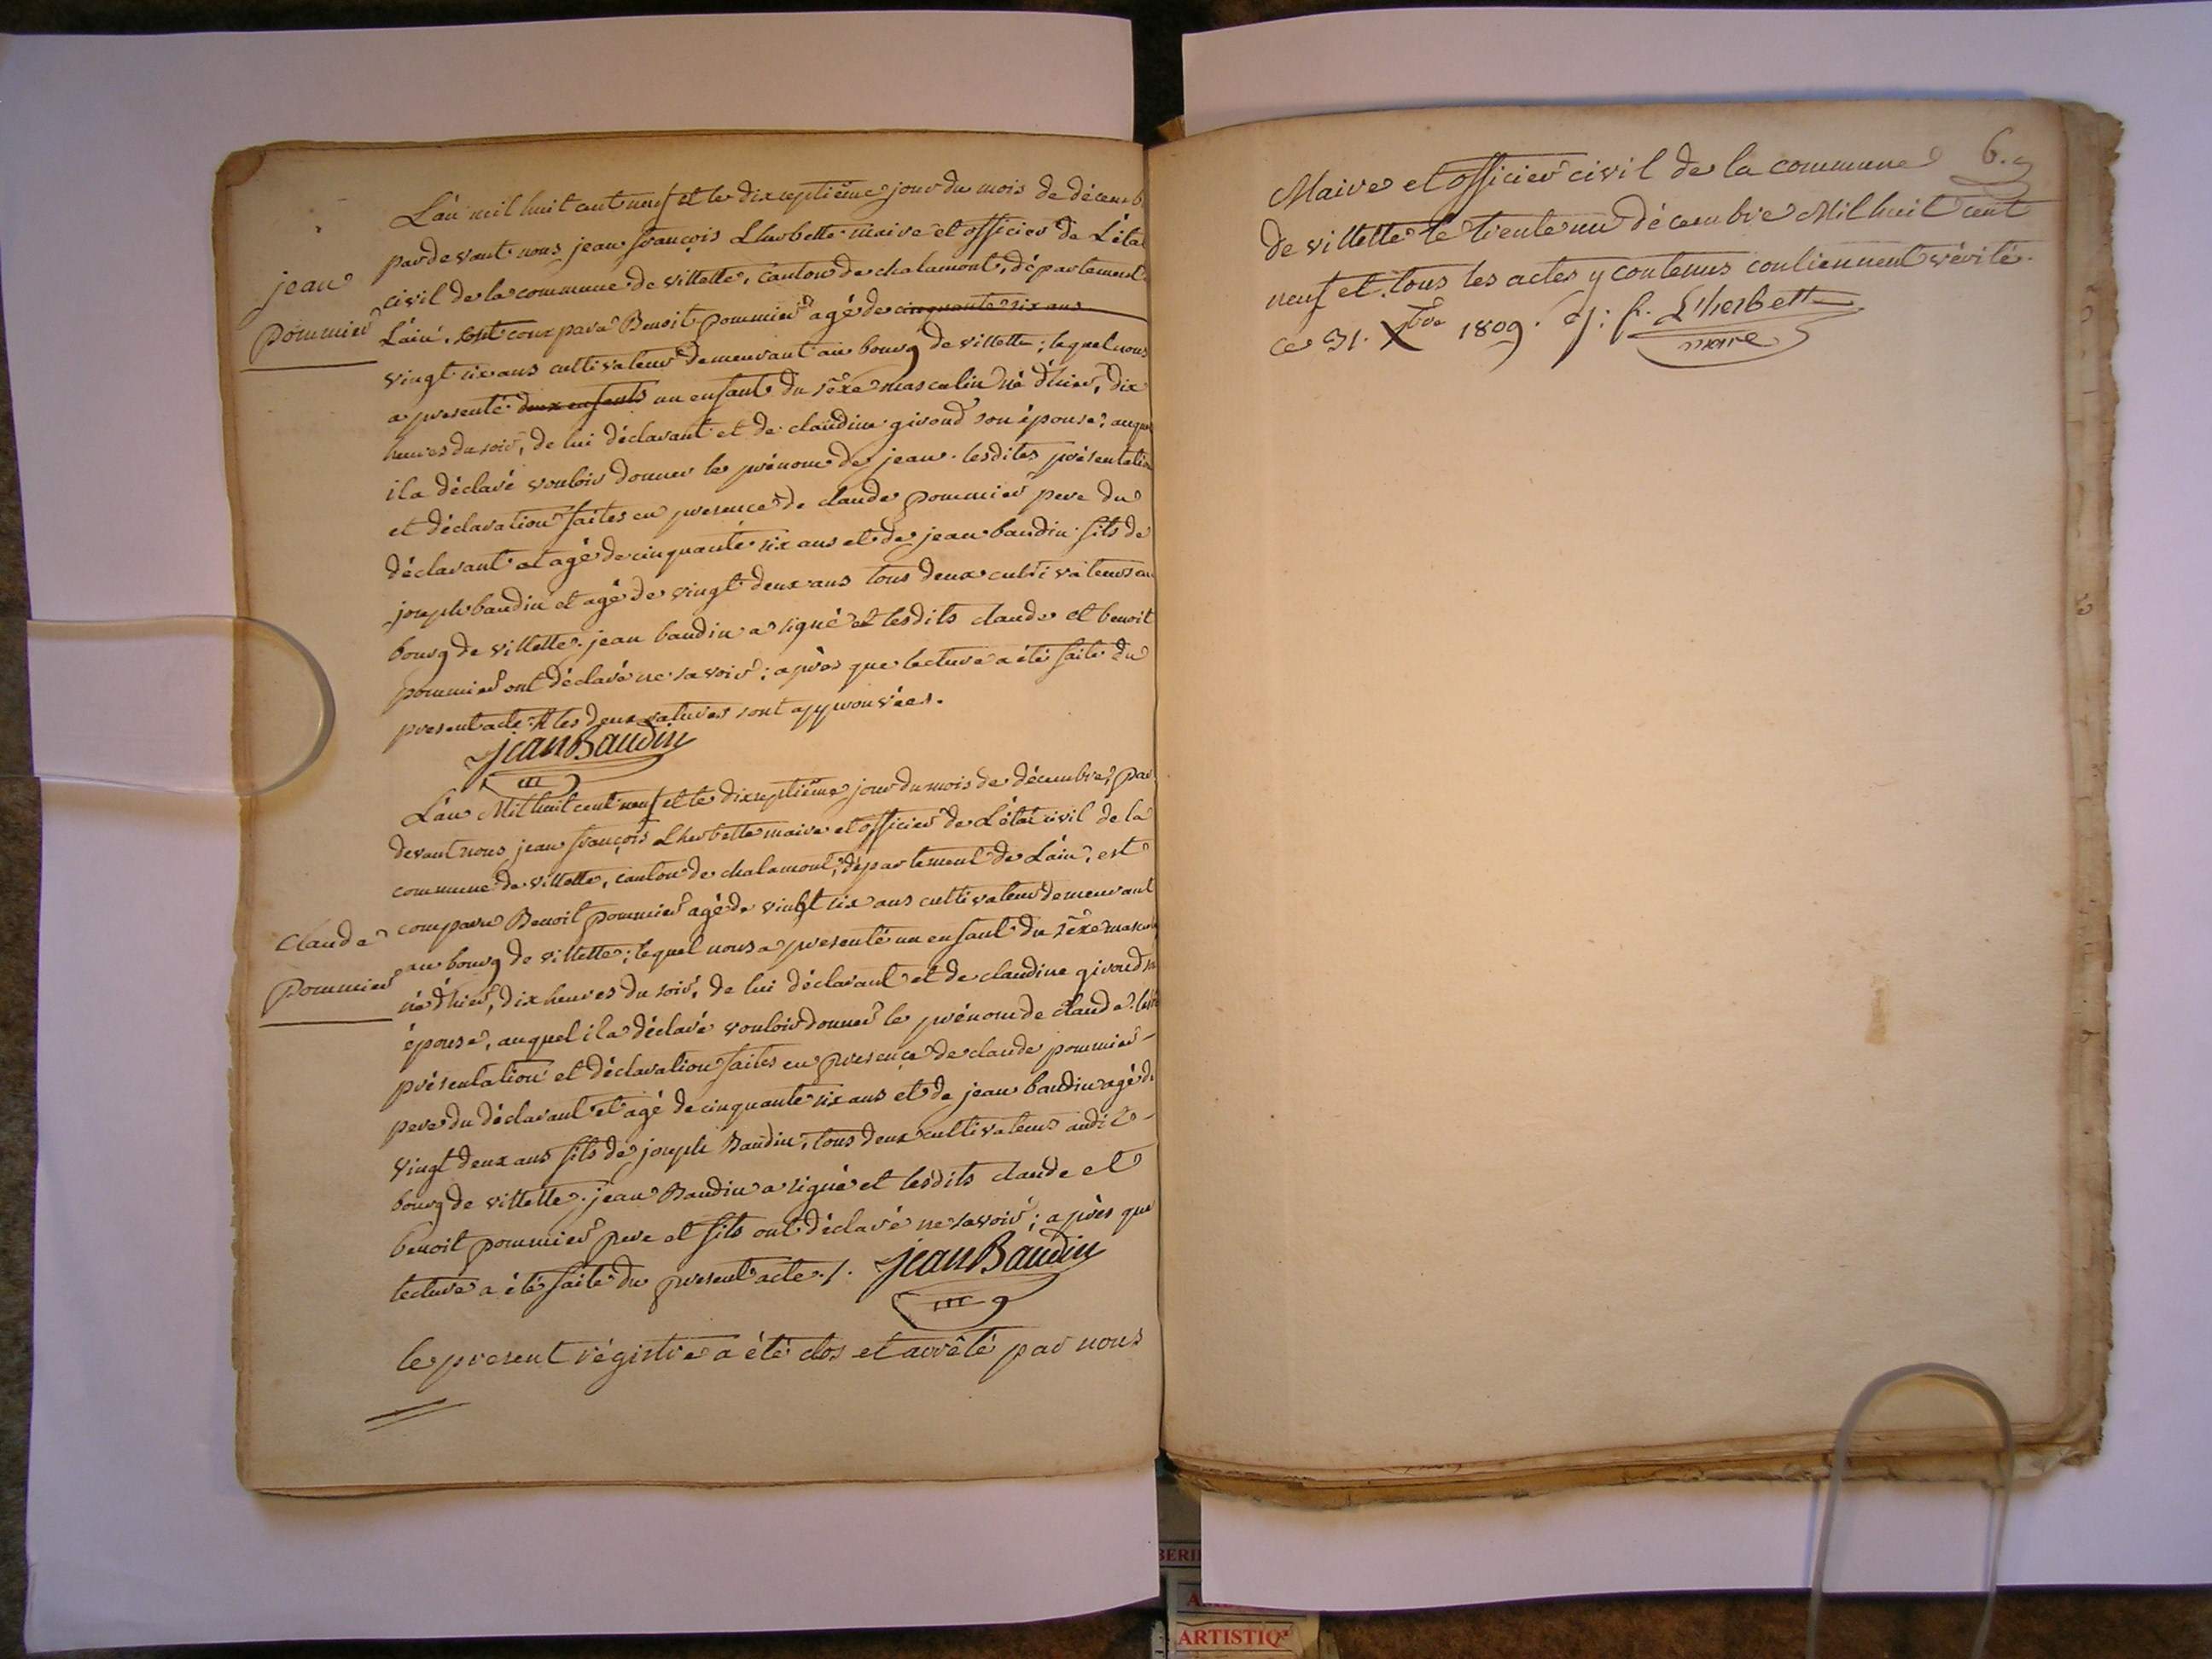 L'an mil huit cent neuf et le dixseptième jour du mois de décemb
pardevant nous jean françois Lherbette maire et officier de L'état
civil de la commune de villette, canton de chalamont, département
L'ain, est comparu Benoit pommier agé de cinquante six ans
vingt six ans cultivateur demeurant au bourg de villette; lequel nous
a presenté deux enfants un enfant du séxe masculin né d'hier, dix
heures du soir, de lui déclarant et de claudine giroud son épouse, auquel
il a déclaré vouloir donner le prénom de jean. lesdites présentation
et déclaration faites en presence de claude pommier pere du
déclarant et agé de cinquante six ans et de jean baudin fils de
joseph baudin et agé de vingt deux ans tous deux cultivateurs au
bourg de villette. jean baudin a signé et lesdits claude et benoit
pommier ont déclaré ne savoir; après que lecture a été faite du
present acte. et les deux ratures sont approuvées.
jean Baudin
jean
pommier
L'an Mil huit cent neuf et le dixseptième jour du mois de décembre, par
devant nous jean françois Lherbette maire et officier de L'état civil de la
commune de villette, canton de chalamont, département de L'ain, est
comparu Benoit pommier agé de vingt six ans cultivateur demeurant
au bourg de villette; lequel nous a presenté un enfant du séxe mascul
né d'hier, dix heures du soir, de lui déclarant et de claudine giroud
épouse, auquel il a déclaré vouloir donner le prénom de claude.
présentation et déclaration faites en presence de claude pommier
pere du déclarant et agé de cinquante six ans et de jean baudin agé de
vingt deux ans fils de joseph Baudin, tous deux cultivateurs audit
bourg de villette. jean Baudin a signé et lesdits claude et
benoit pommier pere et fils ont déclaré ne savoir; après que
lecture a été faite du present acte./. jean Baudin
claude
pommier
le present régistre a été clos et arrêté par nous
6.
Maire et officier civil de la commune
de villette le trente un décembre Mil huit cent
neuf et tous les actes y contenus contiennent vérité.
ce 31. Xbre 1809. J: f. L'herbette
maire
BERI
ARTISTIQ